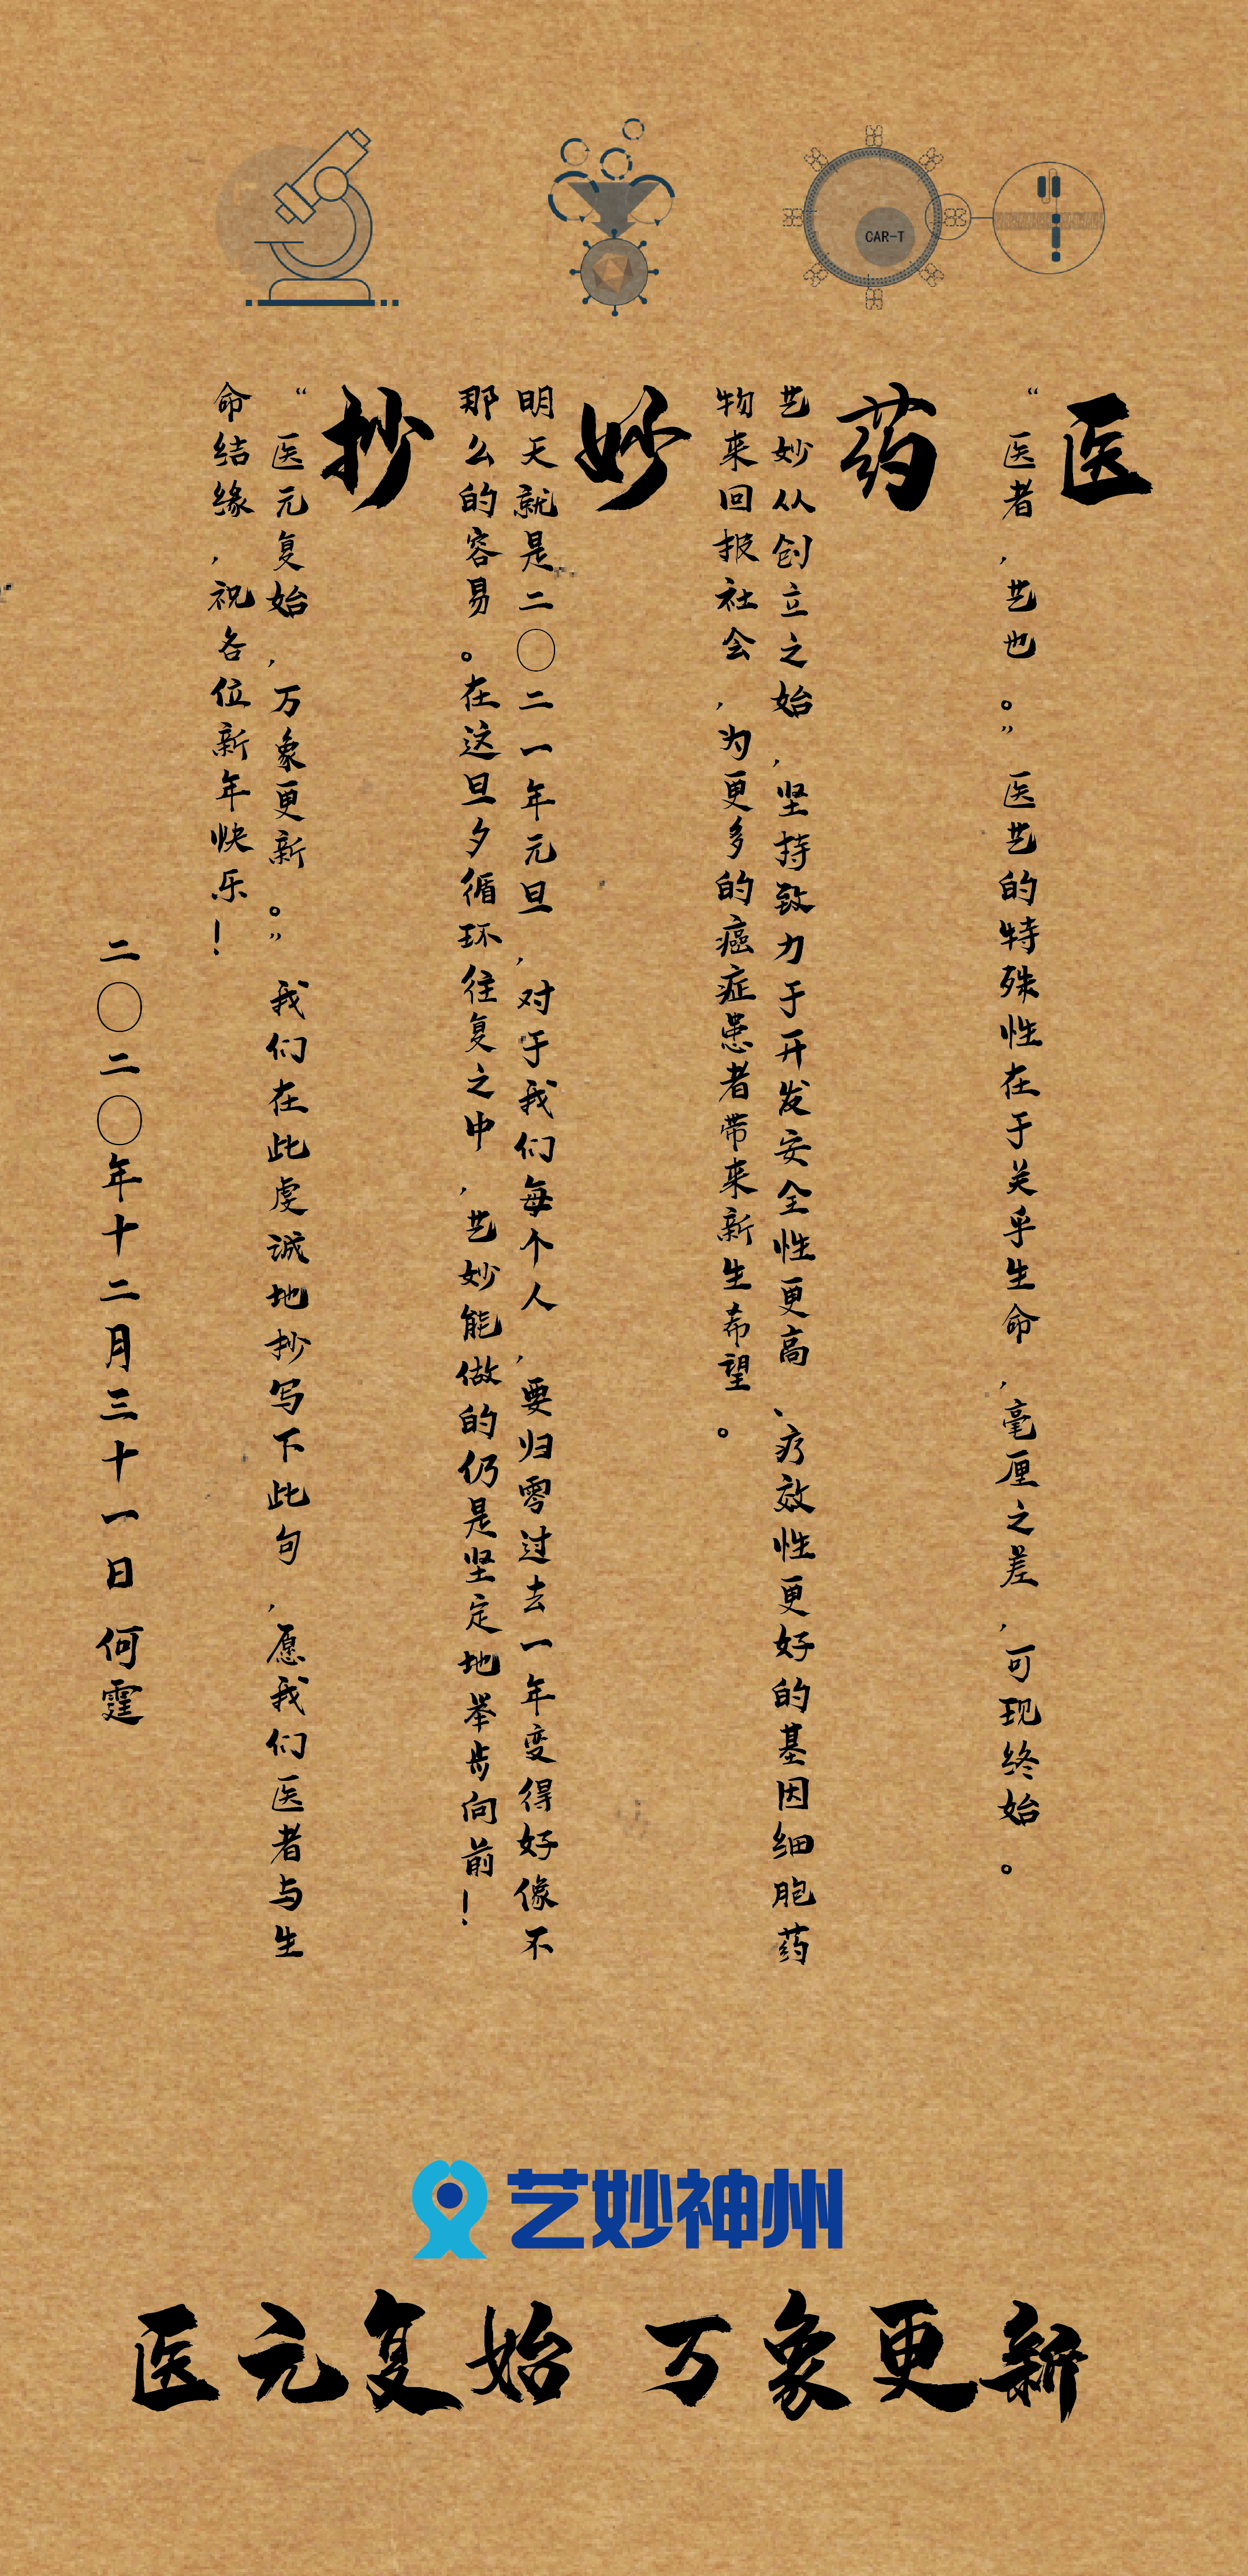 CAR-T
医
“医者，艺也。”医艺的特殊性在于关乎生命，毫厘之差，可现终始。
药
艺妙从创立之始，坚持致力于开发安全性更高、疗效性更好的基因细胞药
物来回报社会，为更多的癌症患者带来新生希望。
妙
明天就是二〇二一年元旦，对于我们每个人，要归零过去一年变得好像不
那么的容易。在这旦夕循环往复之中，艺妙能做的仍是坚定地举步向前！
抄
“医元复始，万象更新。”我们在此虔诚地抄写下此句，愿我们医者与生
命结缘，祝各位新年快乐！
二〇二〇年十二月三十一日 何霆
艺妙神州
医元复始 万象更新